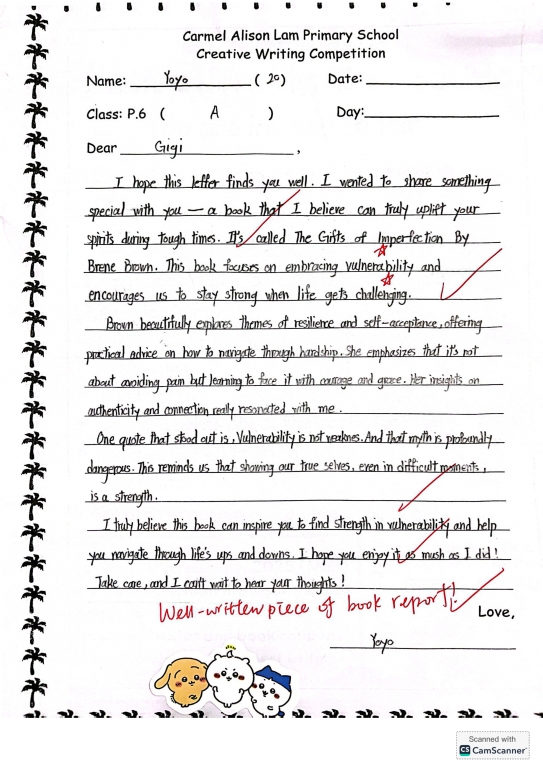 Carmel Alison Lam Primary School
Creative Writing Competition
Name: Yoyo (20) Date:
Class: P.6 ( A ) Day:
Dear Gigi,
I hope this letter finds you well. I wented to share something
special with you — a book that I believe can truly uplift your
spirits during tough times. It's called The Gifts of Imperfection By
Brene Brown. This book focuses on embracing vulnerability and
encourages us to stay strong when life gets challenging.
Brown beautifully explores themes of resilience and self-acceptance, offering
practical advice on how to navigate through hardship. She emphasizes that it's not
about avoiding pain but learning to face it with courage and grace. Her insights on
authenticity and connection really resonated with me.
One quote that stood out is, Vulnerability is not weaknes. And that myth is profoundly
dangerous. This reminds us that showing our true selves, even in difficult moments,
is a strength.
I truly believe this book can inspire you to find strength in vulnerability and help
you navigate through life's ups and downs. I hope you enjoy it as mush as I did!
Take care, and I can't wait to hear your thoughts!
Well-written piece of book report!
Love,
Yoyo
Scanned with
CS CamScanner